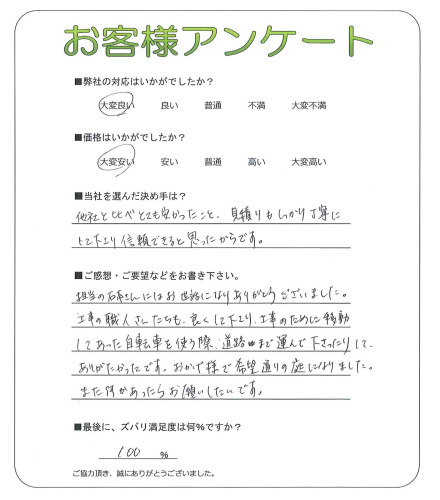 お客様アンケート
■弊社の対応はいかがでしたか？
大変良い 良い 普通 不満 大変不満
■価格はいかがでしたか？
大変安い 安い 普通 高い 大変高い
■当社を選んだ決め手は？
他社と比べとても安かったこと、見積りもしっかり丁寧に
して下さり信頼できると思ったからです。
■ご感想・ご要望などをお書き下さい。
担当の石本さんにはお世話になりありがとうございました。
工事の職人さんたちも、良くして下さり、工事のために移動
してあった自転車を使う際、道路まで運んで下さったりして、
ありがたかったです。おかげ様で希望通りの庭になりました。
また何かあったらお願いしたいです。
■最後に、ズバリ満足度は何%ですか？
100 %
ご協力頂き、誠にありがとうございました。